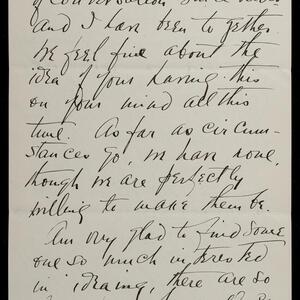 of conversation
and I have been together.
We feel fine about the
idea of your having this
on your mind all this
time. As far as circum-
stances go, we have none,
though we are perfectly
willing to make them be.
Am very glad to find some
one so much interested
in ideaing, there are so